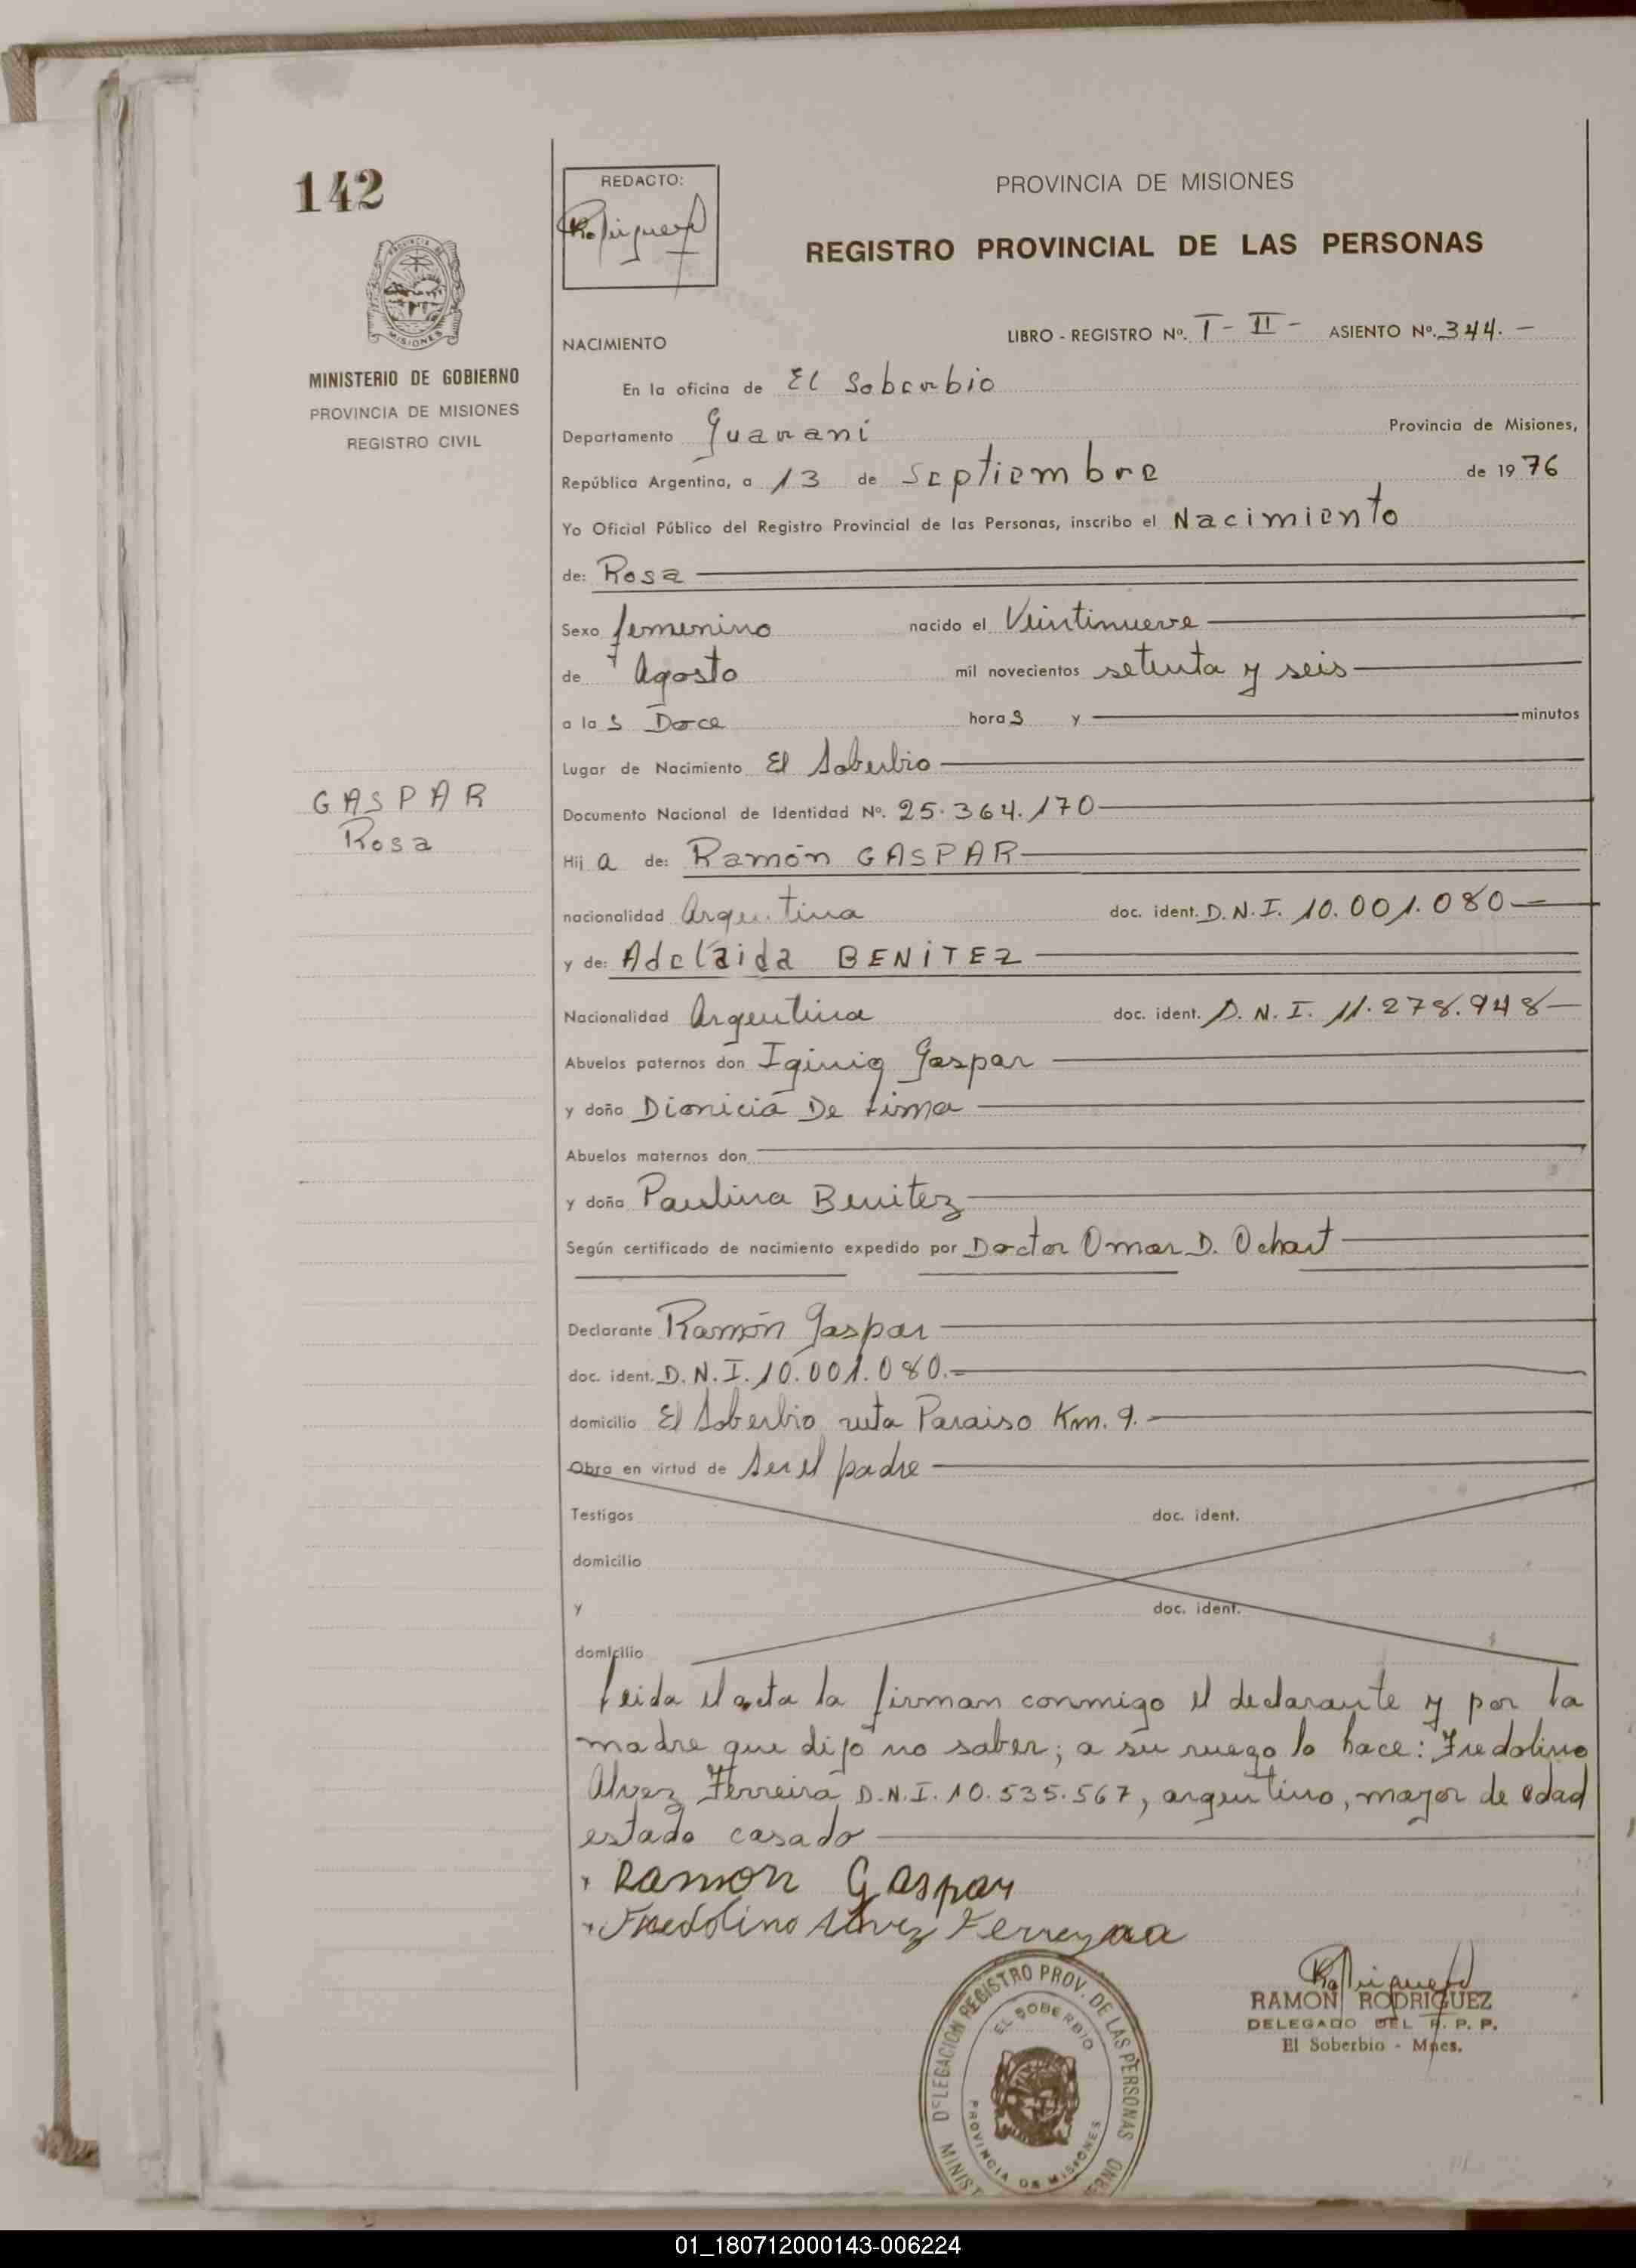 142
REDACTO:
PROVINCIA DE MISIONES
REGISTRO PROVINCIAL DE LAS PERSONAS
MINISTERIO DE GOBIERNO
PROVINCIA DE MISIONES
REGISTRO CIVIL
NACIMIENTO
LIBRO - REGISTRO Nº. I - II - ASIENTO Nº. 344. -
En la oficina de El Soberbio
Departamento Guarani Provincia de Misiones,
República Argentina, a 13 de Septiembre de 1976
Yo Oficial Público del Registro Provincial de las Personas, inscribo el Nacimiento
de: Rosa
Sexo femenino nacido el Veintinueve
de Agosto mil novecientos setenta y seis
a las Doce horas y minutos
Lugar de Nacimiento El Soberbio
GASPAR
Rosa
Documento Nacional de Identidad Nº. 25.364.170
Hija de: Ramón GASPAR
nacionalidad Argentina doc. ident. D.N.I. 10.001.080
y de: Adelaida BENITEZ
Nacionalidad Argentina doc. ident. D.N.I. 11.278.948
Abuelos paternos don Iginio Gaspar
y doña Dionicia De Lima
Abuelos maternos don
y doña Paulina Benitez
Según certificado de nacimiento expedido por Doctor Omar D. Ochart
Declarante Ramón Gaspar
doc. ident. D.N.I. 10.001.080.
domicilio El Soberbio ruta Paraiso Km. 9.
Obra en virtud de ser el padre
Testigos doc. ident.
domicilio
y doc. ident.
domicilio
Leida el acta la firman conmigo el declarante y por la
madre que dijo no saber; a su ruego lo hace: Fredolino
Alvez Ferreira D.N.I. 10.535.567, argentino, mayor de edad
estado casado
Ramon Gaspar
Fredolino Alvez Ferreyra
RAMON RODRIGUEZ
DELEGADO DEL R. P. P.
El Soberbio - Mnes.
DELEGACION REGISTRO PROV. DE LAS PERSONAS
EL SOBERBIO
PROVINCIA DE MISIONES
01_180712000143-006224